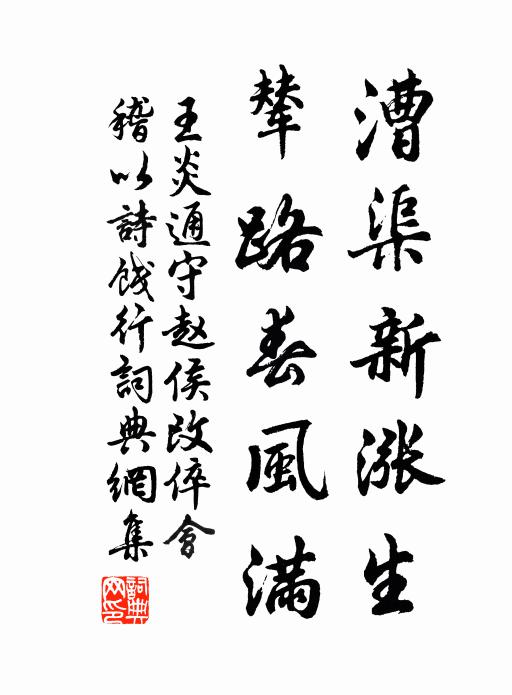 漕渠新涨生
辇路春風满
王炎通守赵侯改倅會
稽以詩餞行詞典網集
詞典网印